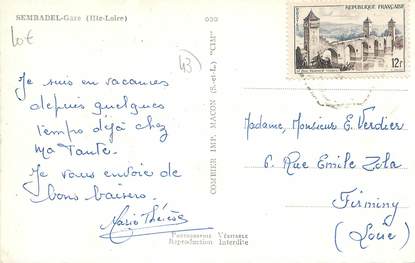 SEMBADEL-Gare (Hte-Loire)
10€
43
Je suis en vacances
depuis quelques
temps déjà chez
ma Tante.
Je vous envoie de
bons baisers.
Marie Thérèse
PHOTOGRAPHIE VÉRITABLE
Reproduction Interdite
COMBIER IMP. MACON (S.-et-L.) "CIM"
RÉPUBLIQUE FRANÇAISE
12f
Madame, Monsieur E. Verdier
6, Rue Emile Zola
Firminy
(Loire)